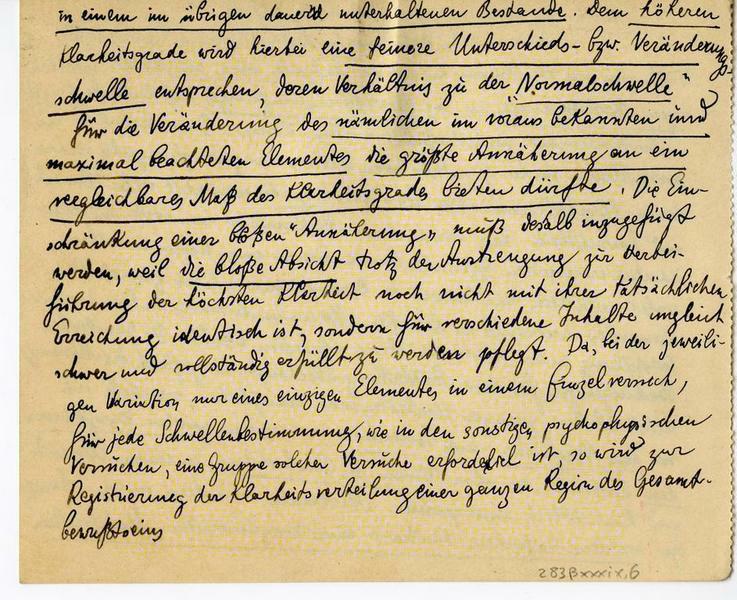 in einem im übrigen dauernd unterhaltenen Bestande. Dem höheren
Klarheitsgrade wird hierbei eine feinere Unterschieds- bzw. Veränderungs-
schwelle entsprechen, deren Verhältnis zu der "Normalschwelle"
für die Veränderung des nämlichen im voraus bekannten und
maximal beachteten Elementes die größte Annäherung an ein
vergleichbares Maß des Klarheitsgrades bieten dürfte. Die Ein-
schränkung einer bloßen "Annäherung" muß deshalb inzugefügt
werden, weil die bloße Absicht trotz der Anstrengung zur Herbei-
führung der höchsten Klarheit noch nicht mit ihrer tatsächlichen
Erreichung identisch ist, sondern für verschiedene Inhalte ungleich
schwer und vollständig erfüllt zu werden pflegt. Da, bei der jeweili-
gen Variation nur eines einzigen Elementes in einem Einzelversuch,
für jede Schwellenbestimmung, wie in den sonstigen psychophysischen
Versuchen, eine Gruppe solcher Versuche erforderlich ist, so wird zur
Registrierung der Klarheitsverteilung einer ganzen Region des Gesamt-
bewußtseins
283βxxxix,6